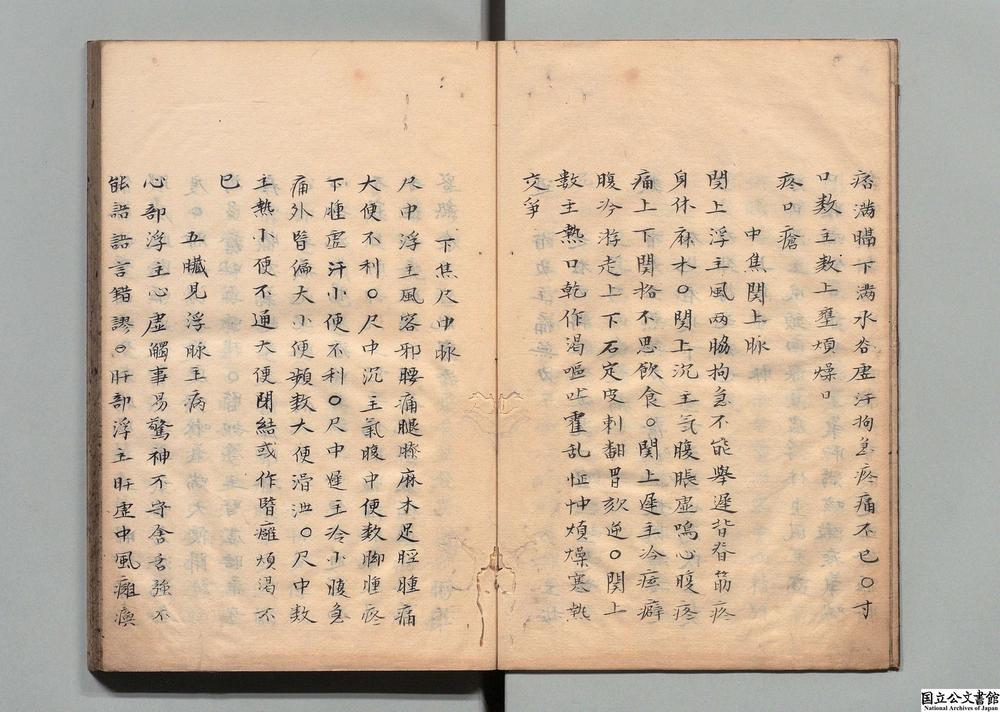 痞滿膈下滿水谷虛汗拘急疼痛不已○寸
口数主数上壅煩燥口
疼口瘡
中焦関上脉
関上浮主風両脇拘急不能舉遲背脊筋疼
身体麻木○関上沉主気腹脹虛鳴心腹疼
痛上下関格不思飲食○関上遲主冷痃癖
腹冷游走上下石定皮刺翻胃欬逆○関上
数主熱口乾作渴嘔吐霍乱怔忡煩燥寒熱
交爭
下焦尺中脉
尺中浮主風客邪腰痛腿膝麻木足脛腫痛
大便不利○尺中沉主氣腹中便数脚腫疼
下腫虛汗小便不利○尺中遲主冷小腹急
痛外腎偏大小便頻数大便滑泄○尺中数
主熱小便不通大便閉結或作腎癰煩渴不
已
五臟見浮脉主病
心部浮主心虛觸事易驚神不守舍舌強不
能語語言錯謬○肝部浮主肝虛中風癱瘓
国立公文書館
National Archives of Japan